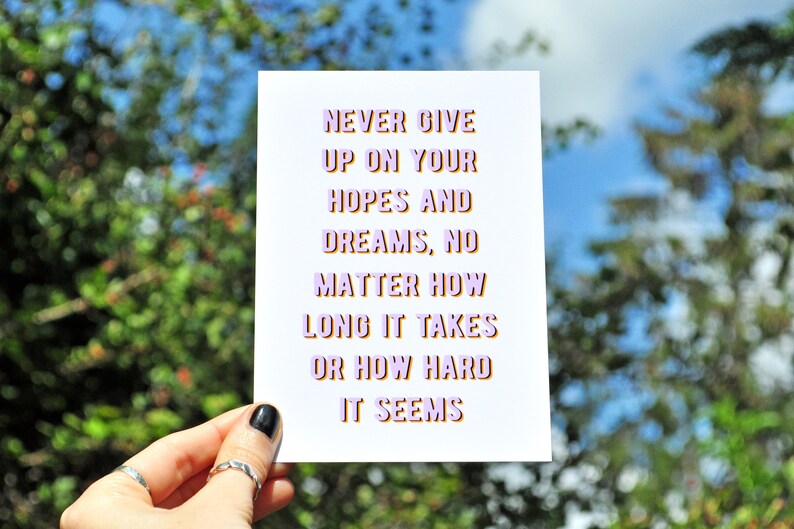 NEVER GIVE
UP ON YOUR
HOPES AND
DREAMS, NO
MATTER HOW
LONG IT TAKES
OR HOW HARD
IT SEEMS